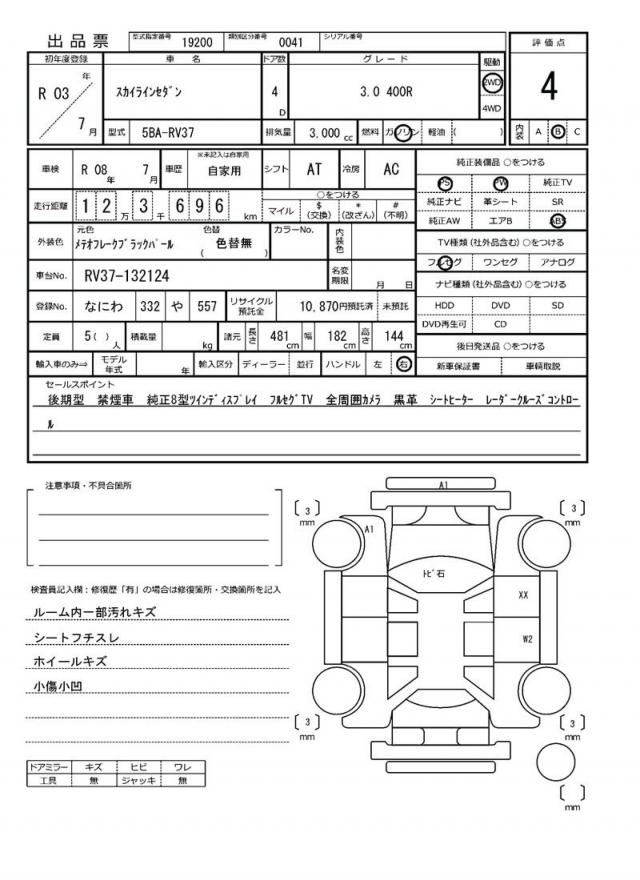 出品票 型式指定番号 19200 類別区分番号 0041 シリアル番号
初年度登録 車名 ドア数 グレード 駆動 評価点
R 03 年 7 月 スカイラインセダン 4 D 3.0 400R 2WD 4WD 4
型式 5BA-RV37 排気量 3,000 cc 燃料 ガソリン 軽油 ( ) 内装 A B C
車検 R 08 年 7 月 車歴 ※未記入は自家用 自家用 シフト AT 冷房 AC
走行距離 1 2 万 3 千 6 9 6 km ○をつける マイル $ (交換) * (改ざん) # (不明)
外装色 元色 メテオフレークブラックパール 色替 ( 色替無 ) カラーNo. 内装色
車台No. RV37-132124 名変期限 月 日
登録No. なにわ 332 や 557 リサイクル預託金 10,870円預託済 未預託
定員 5( ) 人 積載量 kg 諸元 長さ 481 cm 幅 182 cm 高さ 144 cm
輸入車のみ⇒ モデル年式 年 輸入区分 ディーラー 並行 ハンドル 左 右
純正装備品 ○をつける
PS PW 純正TV
純正ナビ 革シート SR
純正AW エアB ABS
TV種類(社外品含む) ○をつける
フルセグ ワンセグ アナログ
ナビ種類(社外品含む) ○をつける
HDD DVD SD
DVD再生可 CD
後日発送品 ○をつける
新車保証書 車輌取説
セールスポイント
後期型 禁煙車 純正8型ツインディスプレイ フルセグTV 全周囲カメラ 黒革 シートヒーター レーダークルーズコントロー
ル
注意事項・不具合箇所
検査員記入欄:修復歴「有」の場合は修復箇所・交換箇所を記入
ルーム内一部汚れキズ
シートフチスレ
ホイールキズ
小傷小凹
ドアミラー キズ ヒビ ワレ
工具 無 ジャッキ 無
A1
[ 3 ] mm
[ 3 ] mm
A1
トビ石
XX
W2
[ 3 ] mm
[ 3 ] mm
[ ] mm